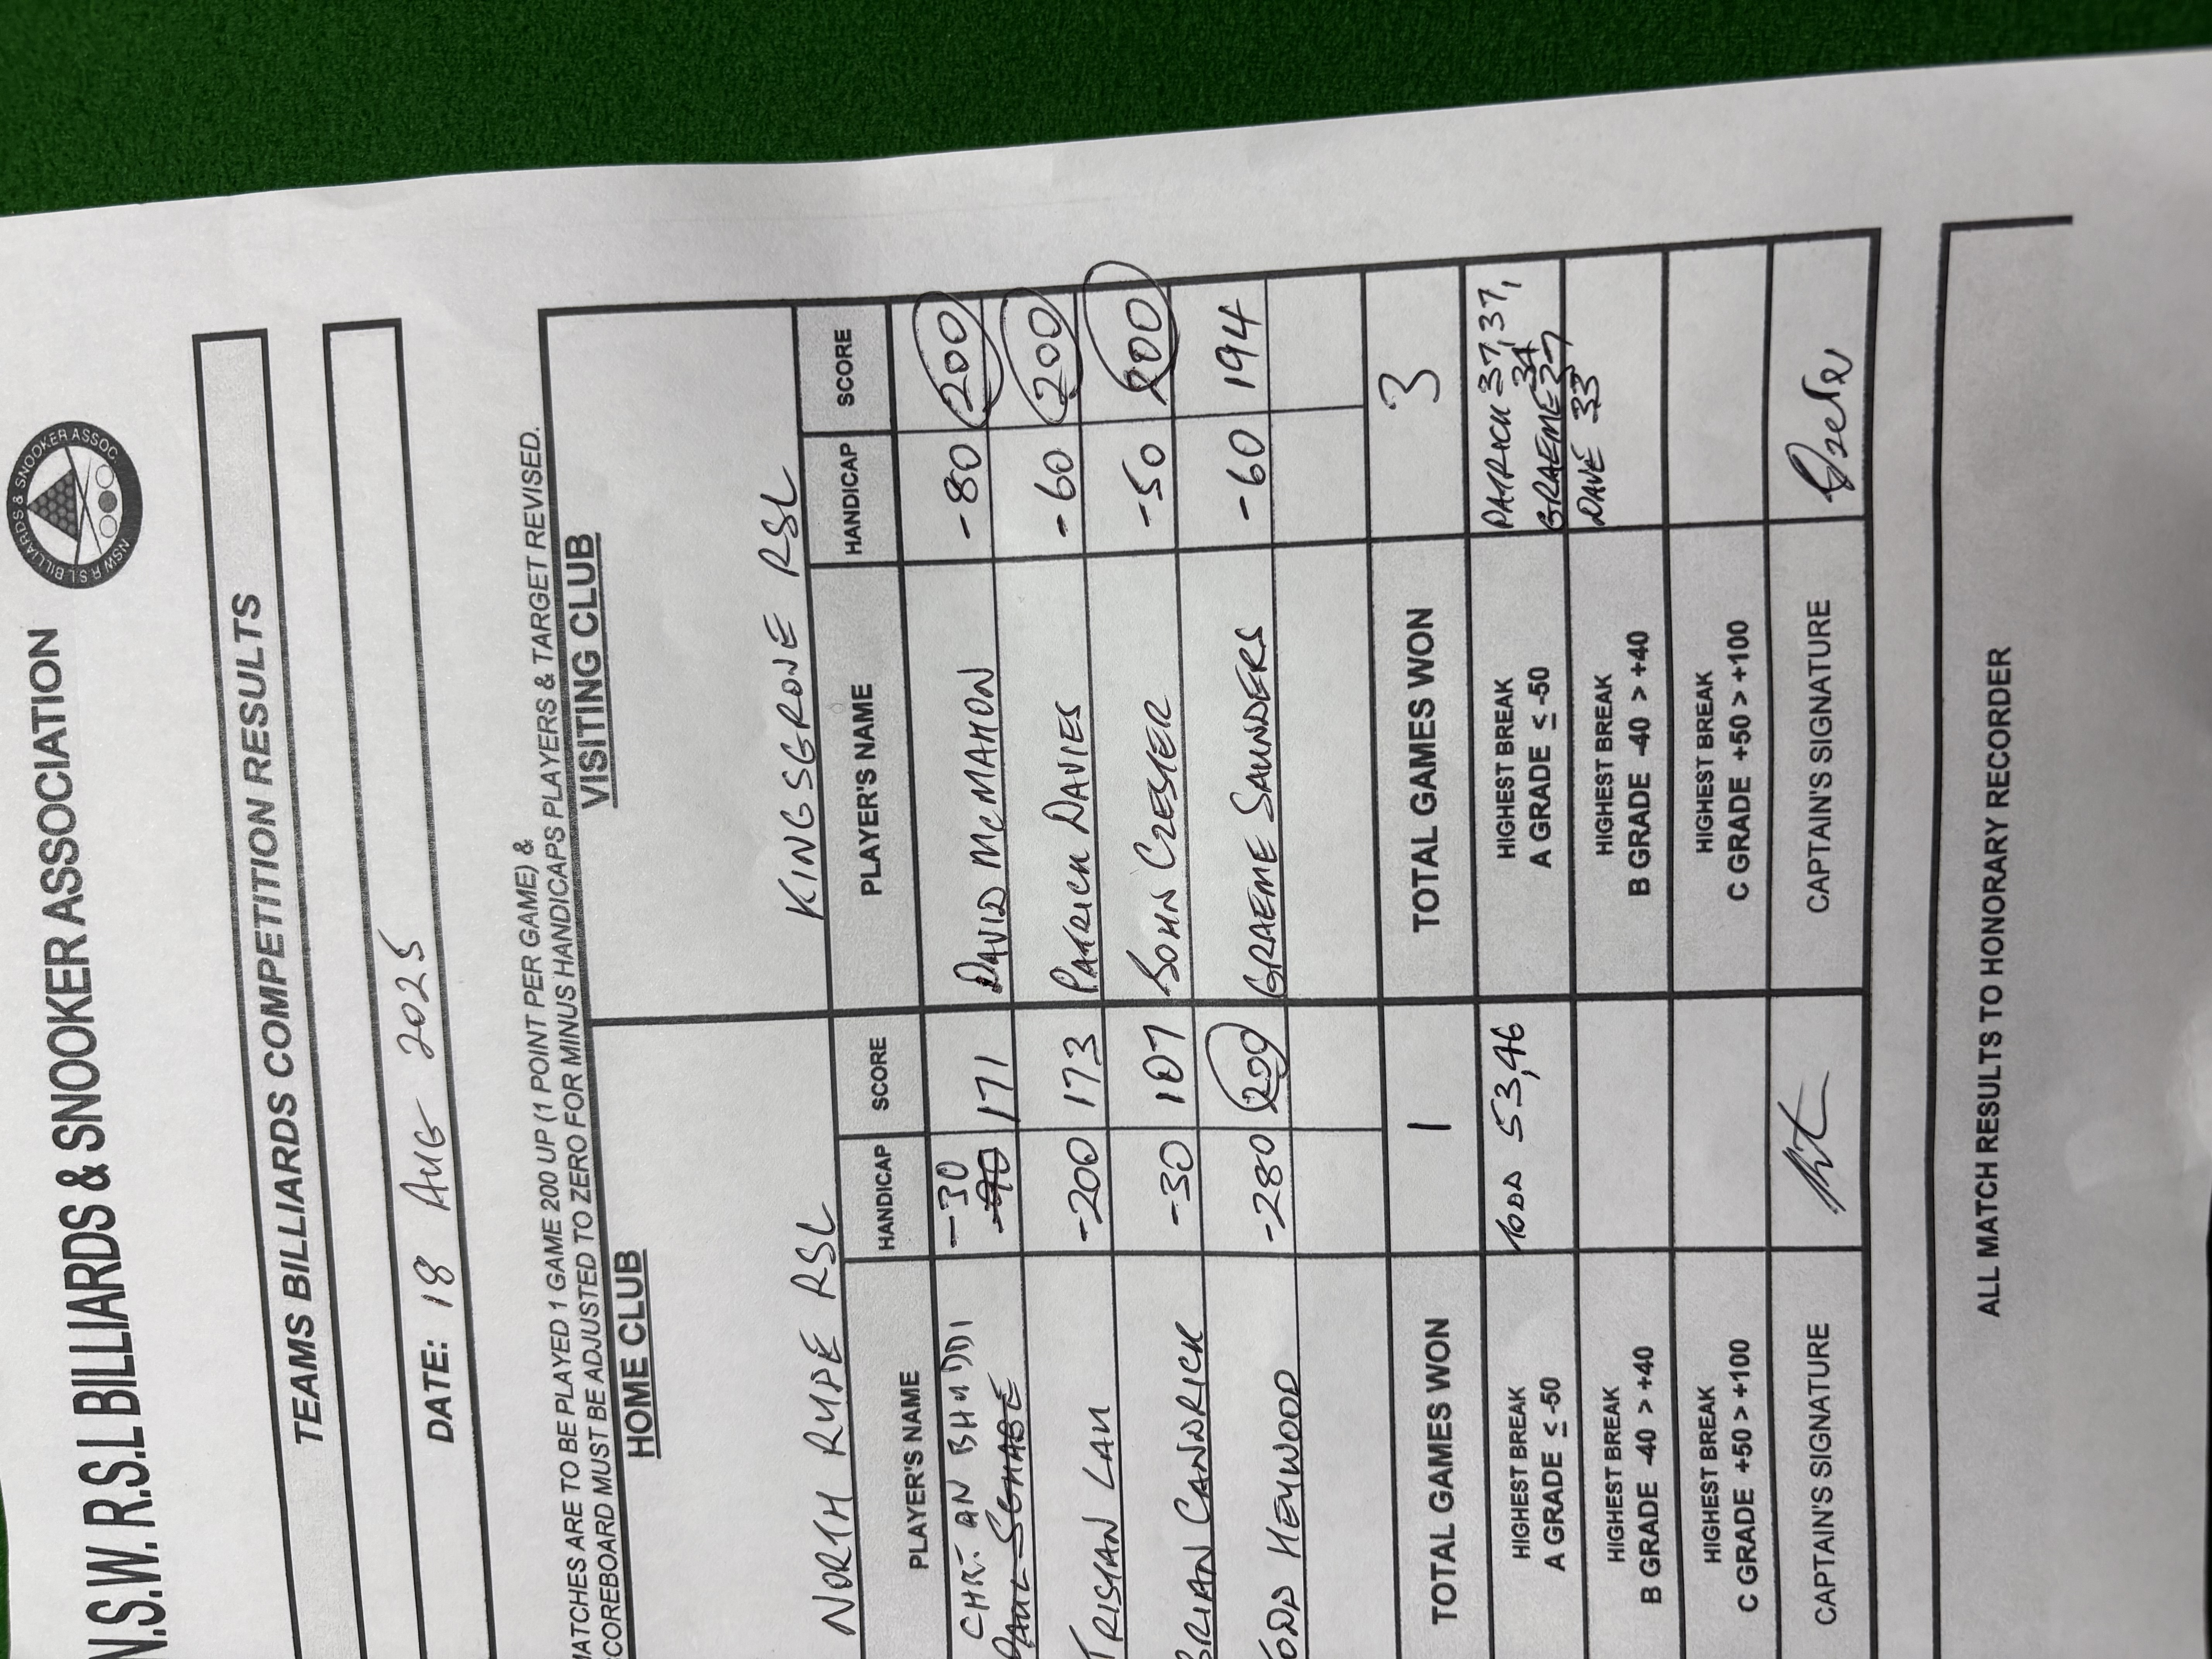 N.S.W. R.S.L BILLIARDS & SNOOKER ASSOCIATION
NSW R.S.L BILLIARDS & SNOOKER ASSOC
TEAMS BILLIARDS COMPETITION RESULTS
DATE: 18 AUG 2025
MATCHES ARE TO BE PLAYED 1 GAME 200 UP (1 POINT PER GAME) &
SCOREBOARD MUST BE ADJUSTED TO ZERO FOR MINUS HANDICAPS PLAYERS & TARGET REVISED.
HOME CLUB VISITING CLUB
NORTH RYDE RSL KINGSGROVE RSL
PLAYER'S NAME HANDICAP SCORE PLAYER'S NAME HANDICAP SCORE
BHUDDI -30
PAUL SCHABE 171 DAVID McMAHON -80 200
TRISTAN LAU -200 173 PATRICK DAVIES -60 200
BRIAN CANDRICK -30 107 JOHN CZESTER -50 200
TODD HEYWOOD -280 200 GRAEME SAUNDERS -60 194
TOTAL GAMES WON 1 TOTAL GAMES WON 3
HIGHEST BREAK A GRADE ≤ -50 TODD 53,46 HIGHEST BREAK A GRADE ≤ -50 PATRICK 37,37,34
GRAEME 27
HIGHEST BREAK B GRADE -40 > +40 HIGHEST BREAK B GRADE -40 > +40 DAVE 33
HIGHEST BREAK C GRADE +50 > +100 HIGHEST BREAK C GRADE +50 > +100
CAPTAIN'S SIGNATURE CAPTAIN'S SIGNATURE
ALL MATCH RESULTS TO HONORARY RECORDER